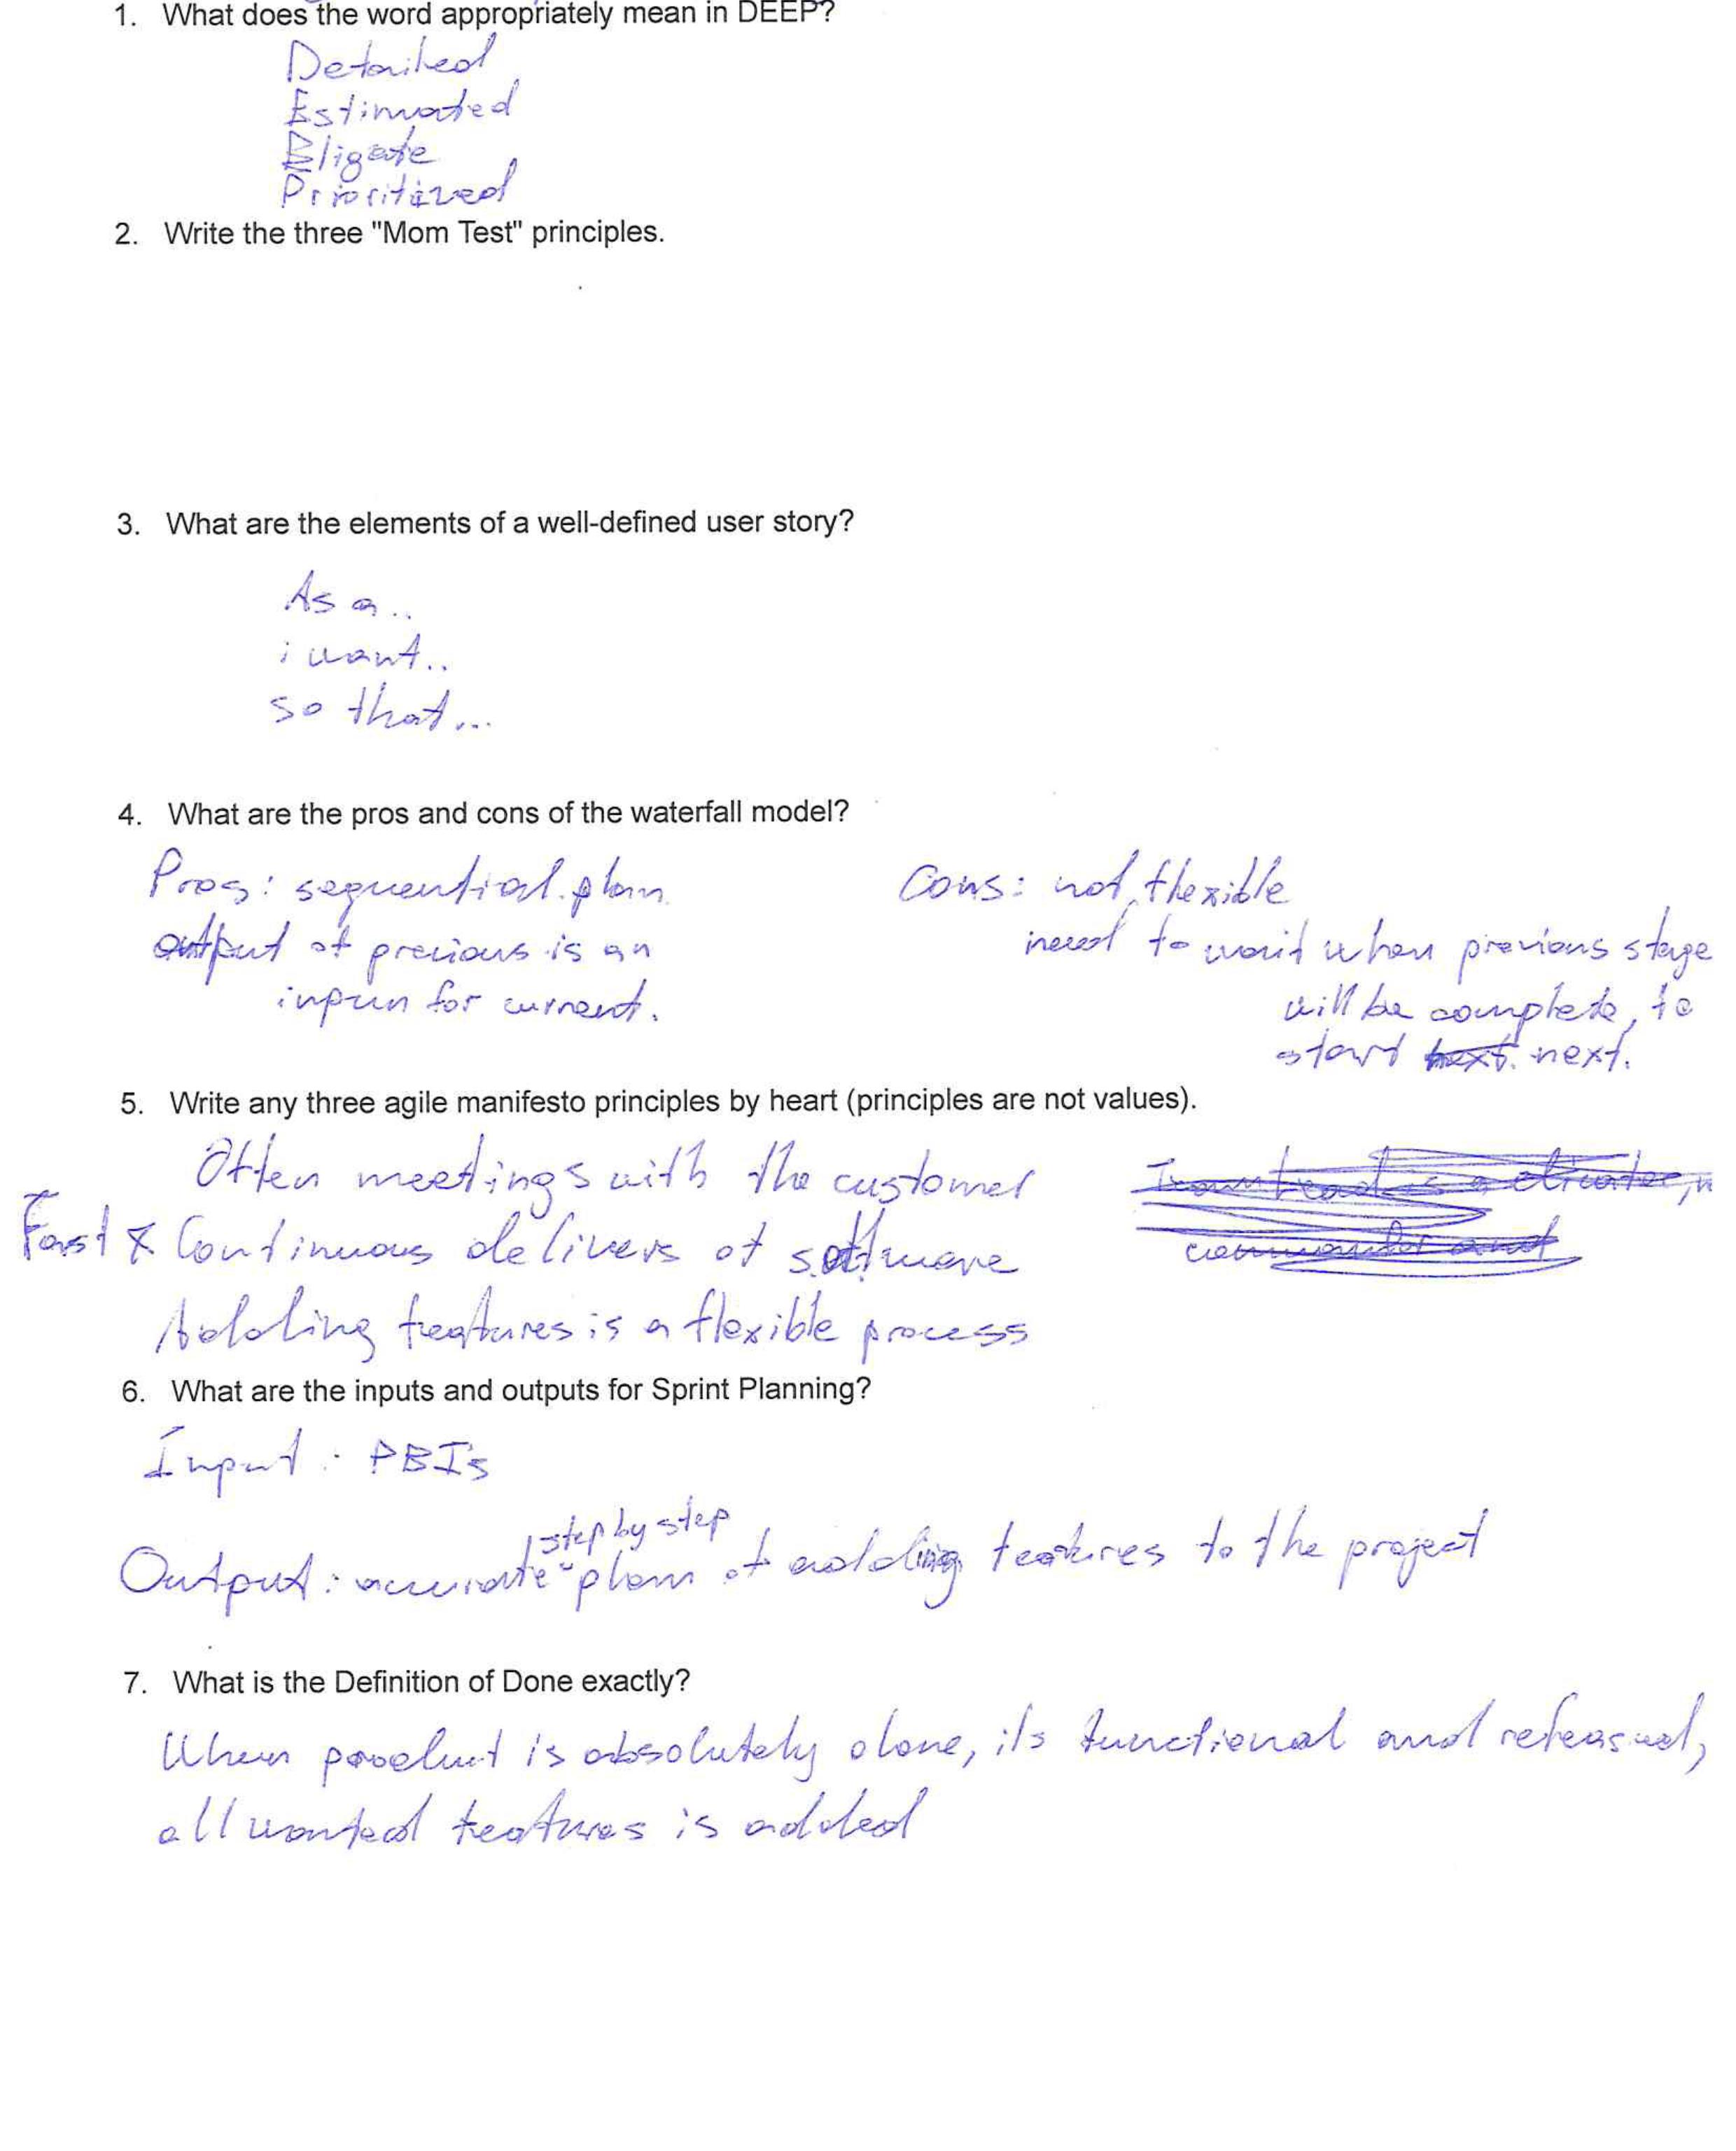 1. What does the word appropriately mean in DEEP?
Detailed
Estimated
Eligate
Prioritized
2. Write the three "Mom Test" principles.
3. What are the elements of a well-defined user story?
As a..
i want..
so that...
4. What are the pros and cons of the waterfall model?
Pros: sequential plan
output of previous is an
inpun for current.
Cons: not flexible
need to wait when previous stage
will be complete, to
start next. next.
5. Write any three agile manifesto principles by heart (principles are not values).
Often meetings with the customer
Fast & Continuous delivers of software
Adding features is a flexible process
6. What are the inputs and outputs for Sprint Planning?
Input: PBIs
step by step
Output: accurate plan of adding features to the project
7. What is the Definition of Done exactly?
When product is absolutely done, it's functional and released,
all wanted features is added